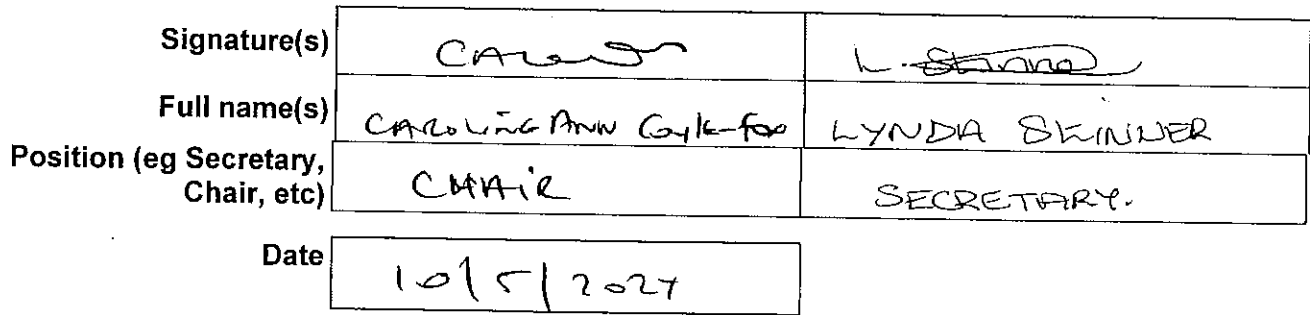 Signature(s) L. Skinner
Full name(s) CAROLINE ANN Coyle-Fox LYNDA SKINNER
Position (eg Secretary, CHAIR SECRETARY.
Chair, etc)
Date 10/5/2024